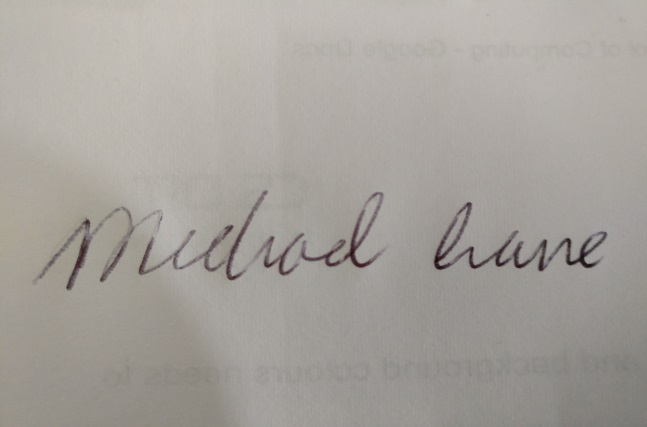 of Computing - Google Docs
Michael
and background colours needs to